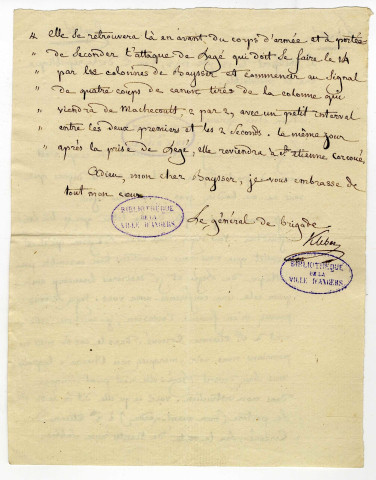 " elle se retrouvera là en avant du corps d'armée et à portée
" de seconder l'attaque de Legé qui doit se faire le 14
" par les colonnes de Baysser et commencer au signal
" de quatre coups de canon tirés de la colonne qui
" viendra de Machecoult, 2 par 2, avec un petit interval
" entre les deux premiers et les 2 seconds. le même jour
" après la prise de Legé, elle reviendra à St Etienne Corcoué.
Adieu, mon cher Baysser, je vous embrasse de
tout mon cœur
Le général de brigade
Kleber
BIBLIOTHÈQUE
DE LA
VILLE D'ANGERS
BIBLIOTHÈQUE
DE LA
VILLE D'ANGERS